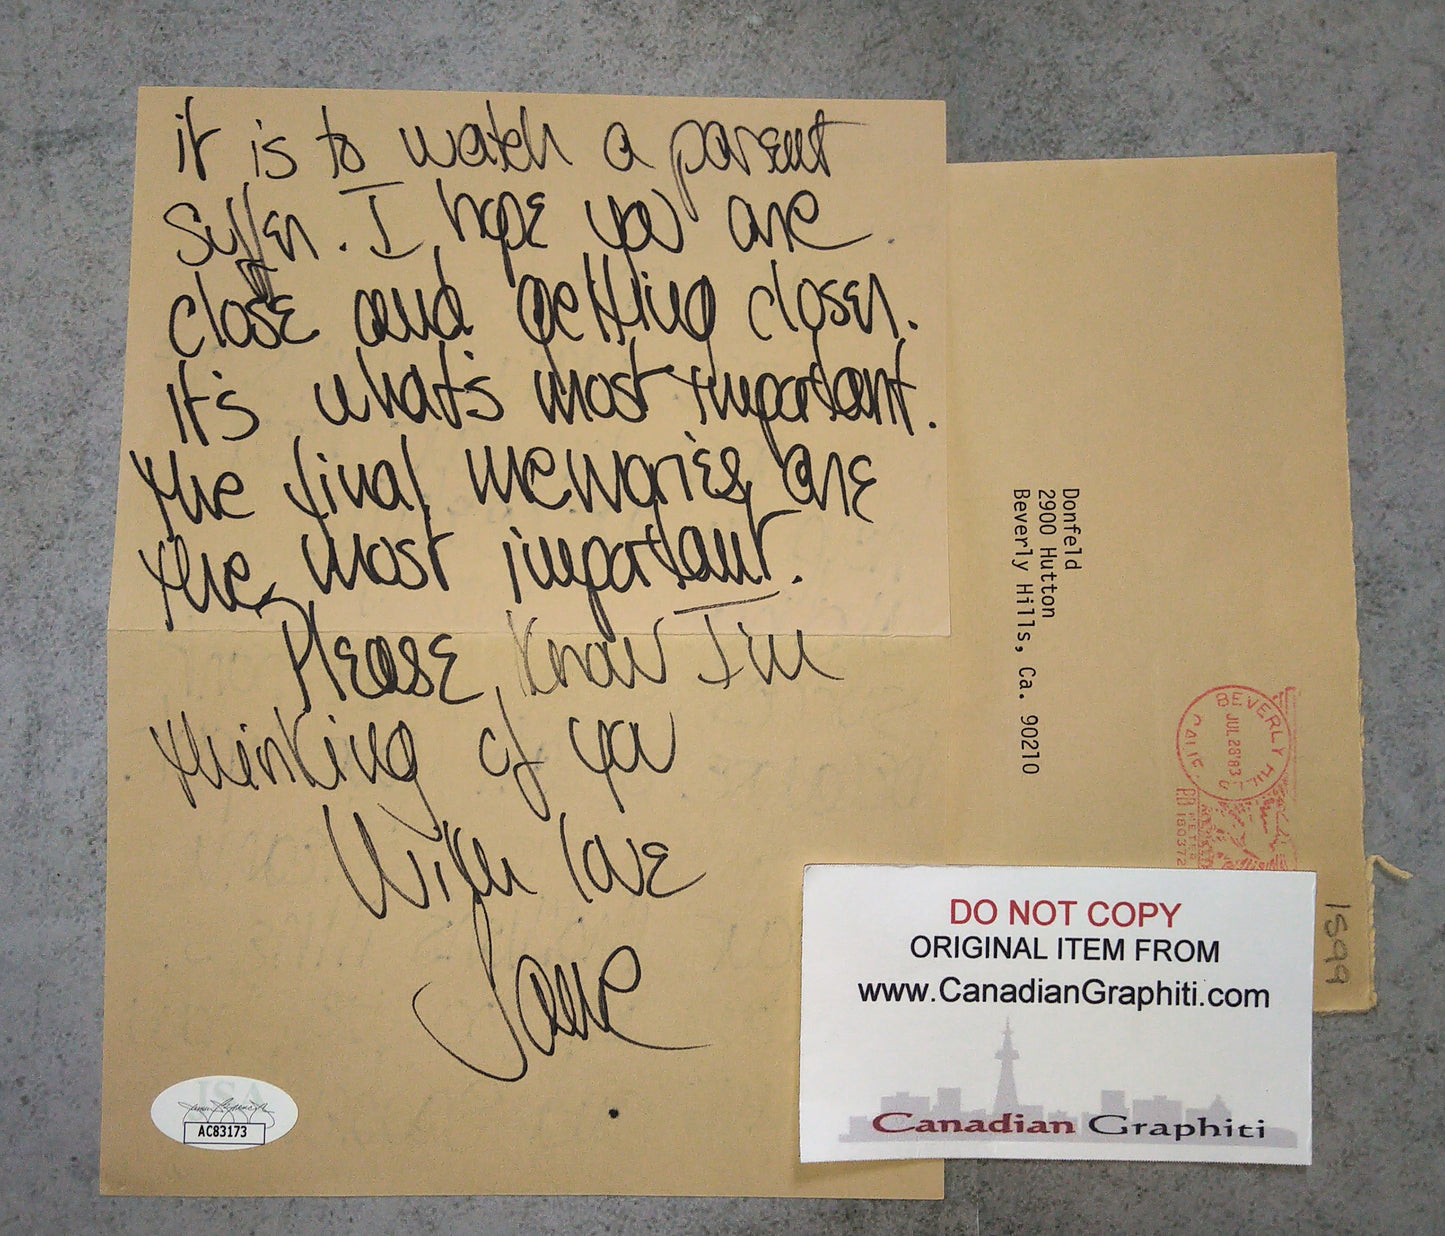 it is to watch a parent
suffer. I hope you are
close and getting closer.
It's what's most important.
the final memories are
the most important.
Please know I'm
thinking of you
With love
Jane
Donfeld
2900 Hutton
Beverly Hills, Ca. 90210
BEVERLY HILLS
CALIF.
JUL 28'83
PB
METER
180372
1899
JSA
AC83173
DO NOT COPY
ORIGINAL ITEM FROM
www.CanadianGraphiti.com
Canadian Graphiti